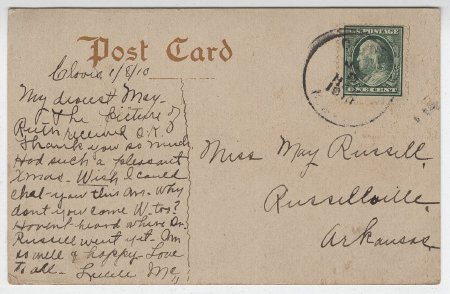 Post Card
U.S. POSTAGE
ONE CENT
Clovis 1/8/10
My dearest May -
The picture of
Ruth received O.K.
Thank you so much
Had such a pleasant
Xmas - Wish I could
chat - you this Am. Why
dont you come W - too?
Haven't heard where Dr.
Russell went yet. Am
so well & happy - Love
to all - Lucile Mc,,
Miss May Russell,
Russellville,
Arkansas.